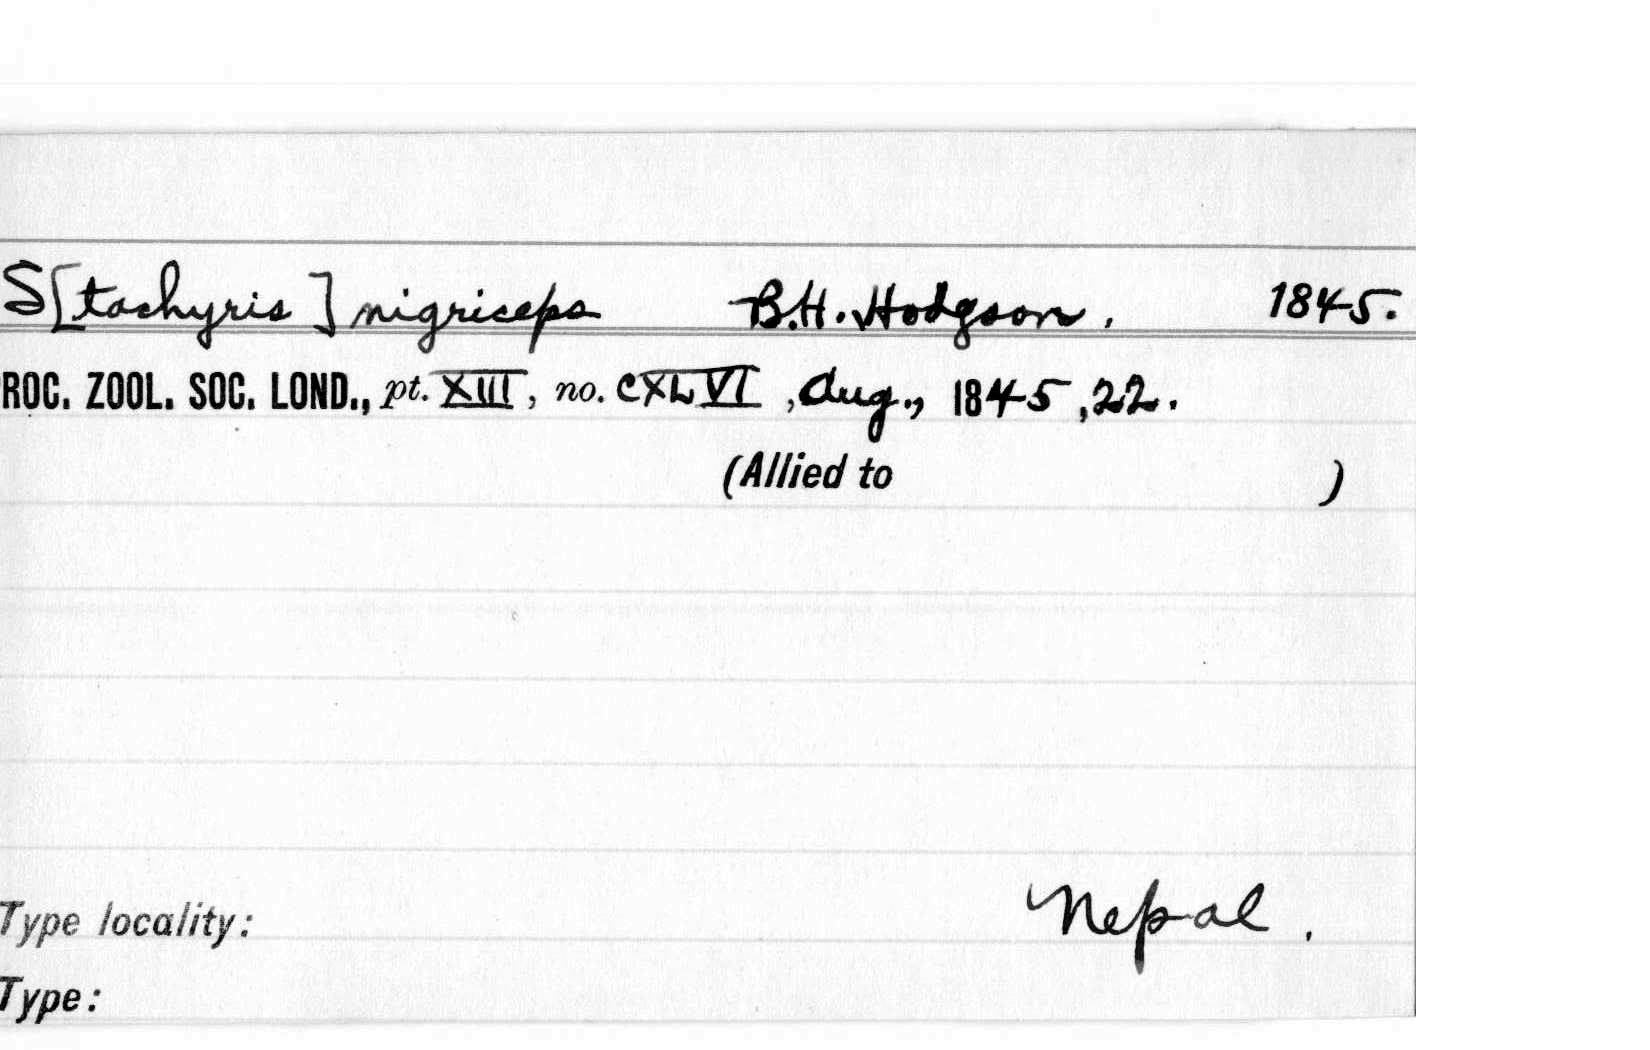 S[tachyris] nigriceps B.H. Hodgson. 1845.
ROC. ZOOL. SOC. LOND., pt. XIII, no. CXLVI, Aug., 1845, 22.
(Allied to )
Type locality: Nepal.
Type: